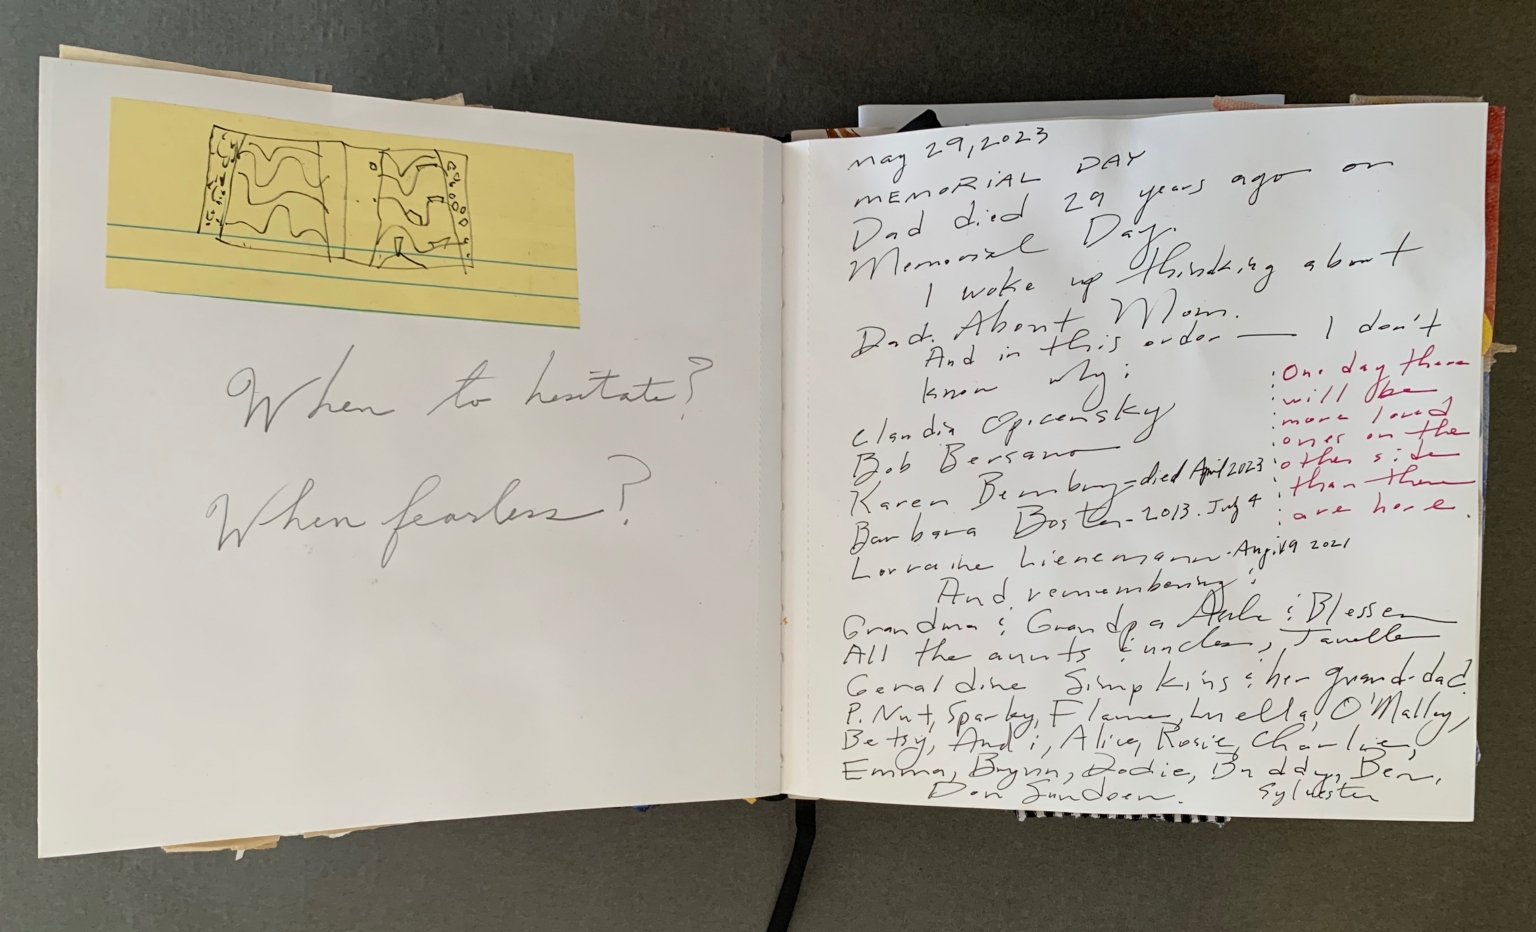 When to hesitate?
When fearless?
May 29, 2023
MEMORIAL DAY
Dad died 29 years ago on
Memorial Day.
I woke up thinking about
Dad. About Mom.
And in this order — I don't
know why:
Claudia Opicensky
Bob Bersano
Karen - died April 2023
Barbara Boster - 2013. July 4
Lorraine Lienemann - Aug. 19 2021
One day there
will be
more loved
ones on the
other side
than there
are here.
And remembering:
Grandma & Grandpa & Blessen
All the aunts & uncles, Janelle
Geraldine Simpkins & her grand-dad
P. Nut, Sparky, Flame, Luella, O'Malley,
Betsy, Andi, Alice, Rosie, Charlie,
Emma, Brynn, Dodie, Buddy, Ben,
Don Sundeen. Sylvester